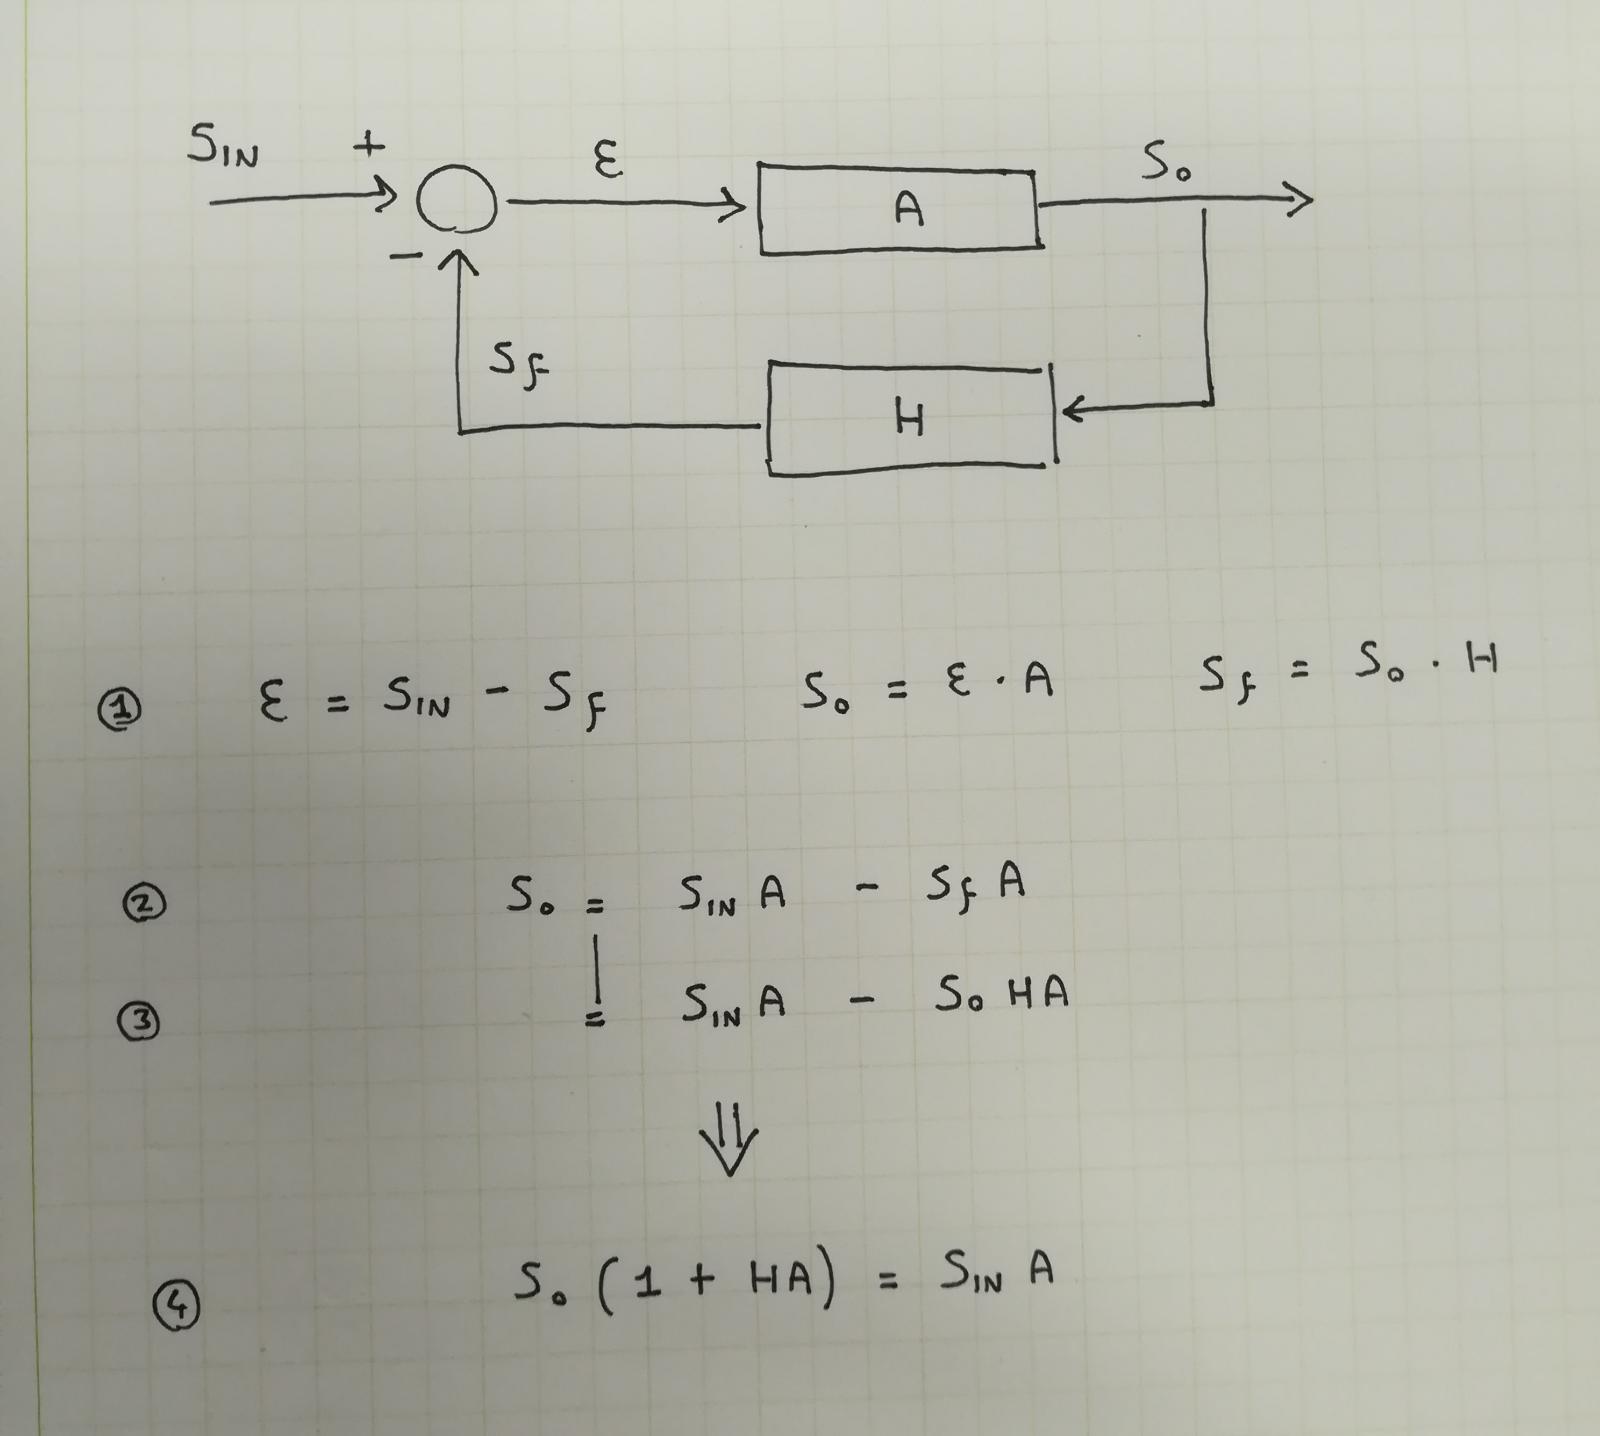 S_IN + ε S_o
A
-
S_f
H
① ε = S_IN - S_f S_o = ε · A S_f = S_o · H
② S_o = S_IN A - S_f A
③ = S_IN A - S_o HA
⇓
④ S_o (1 + HA) = S_IN A